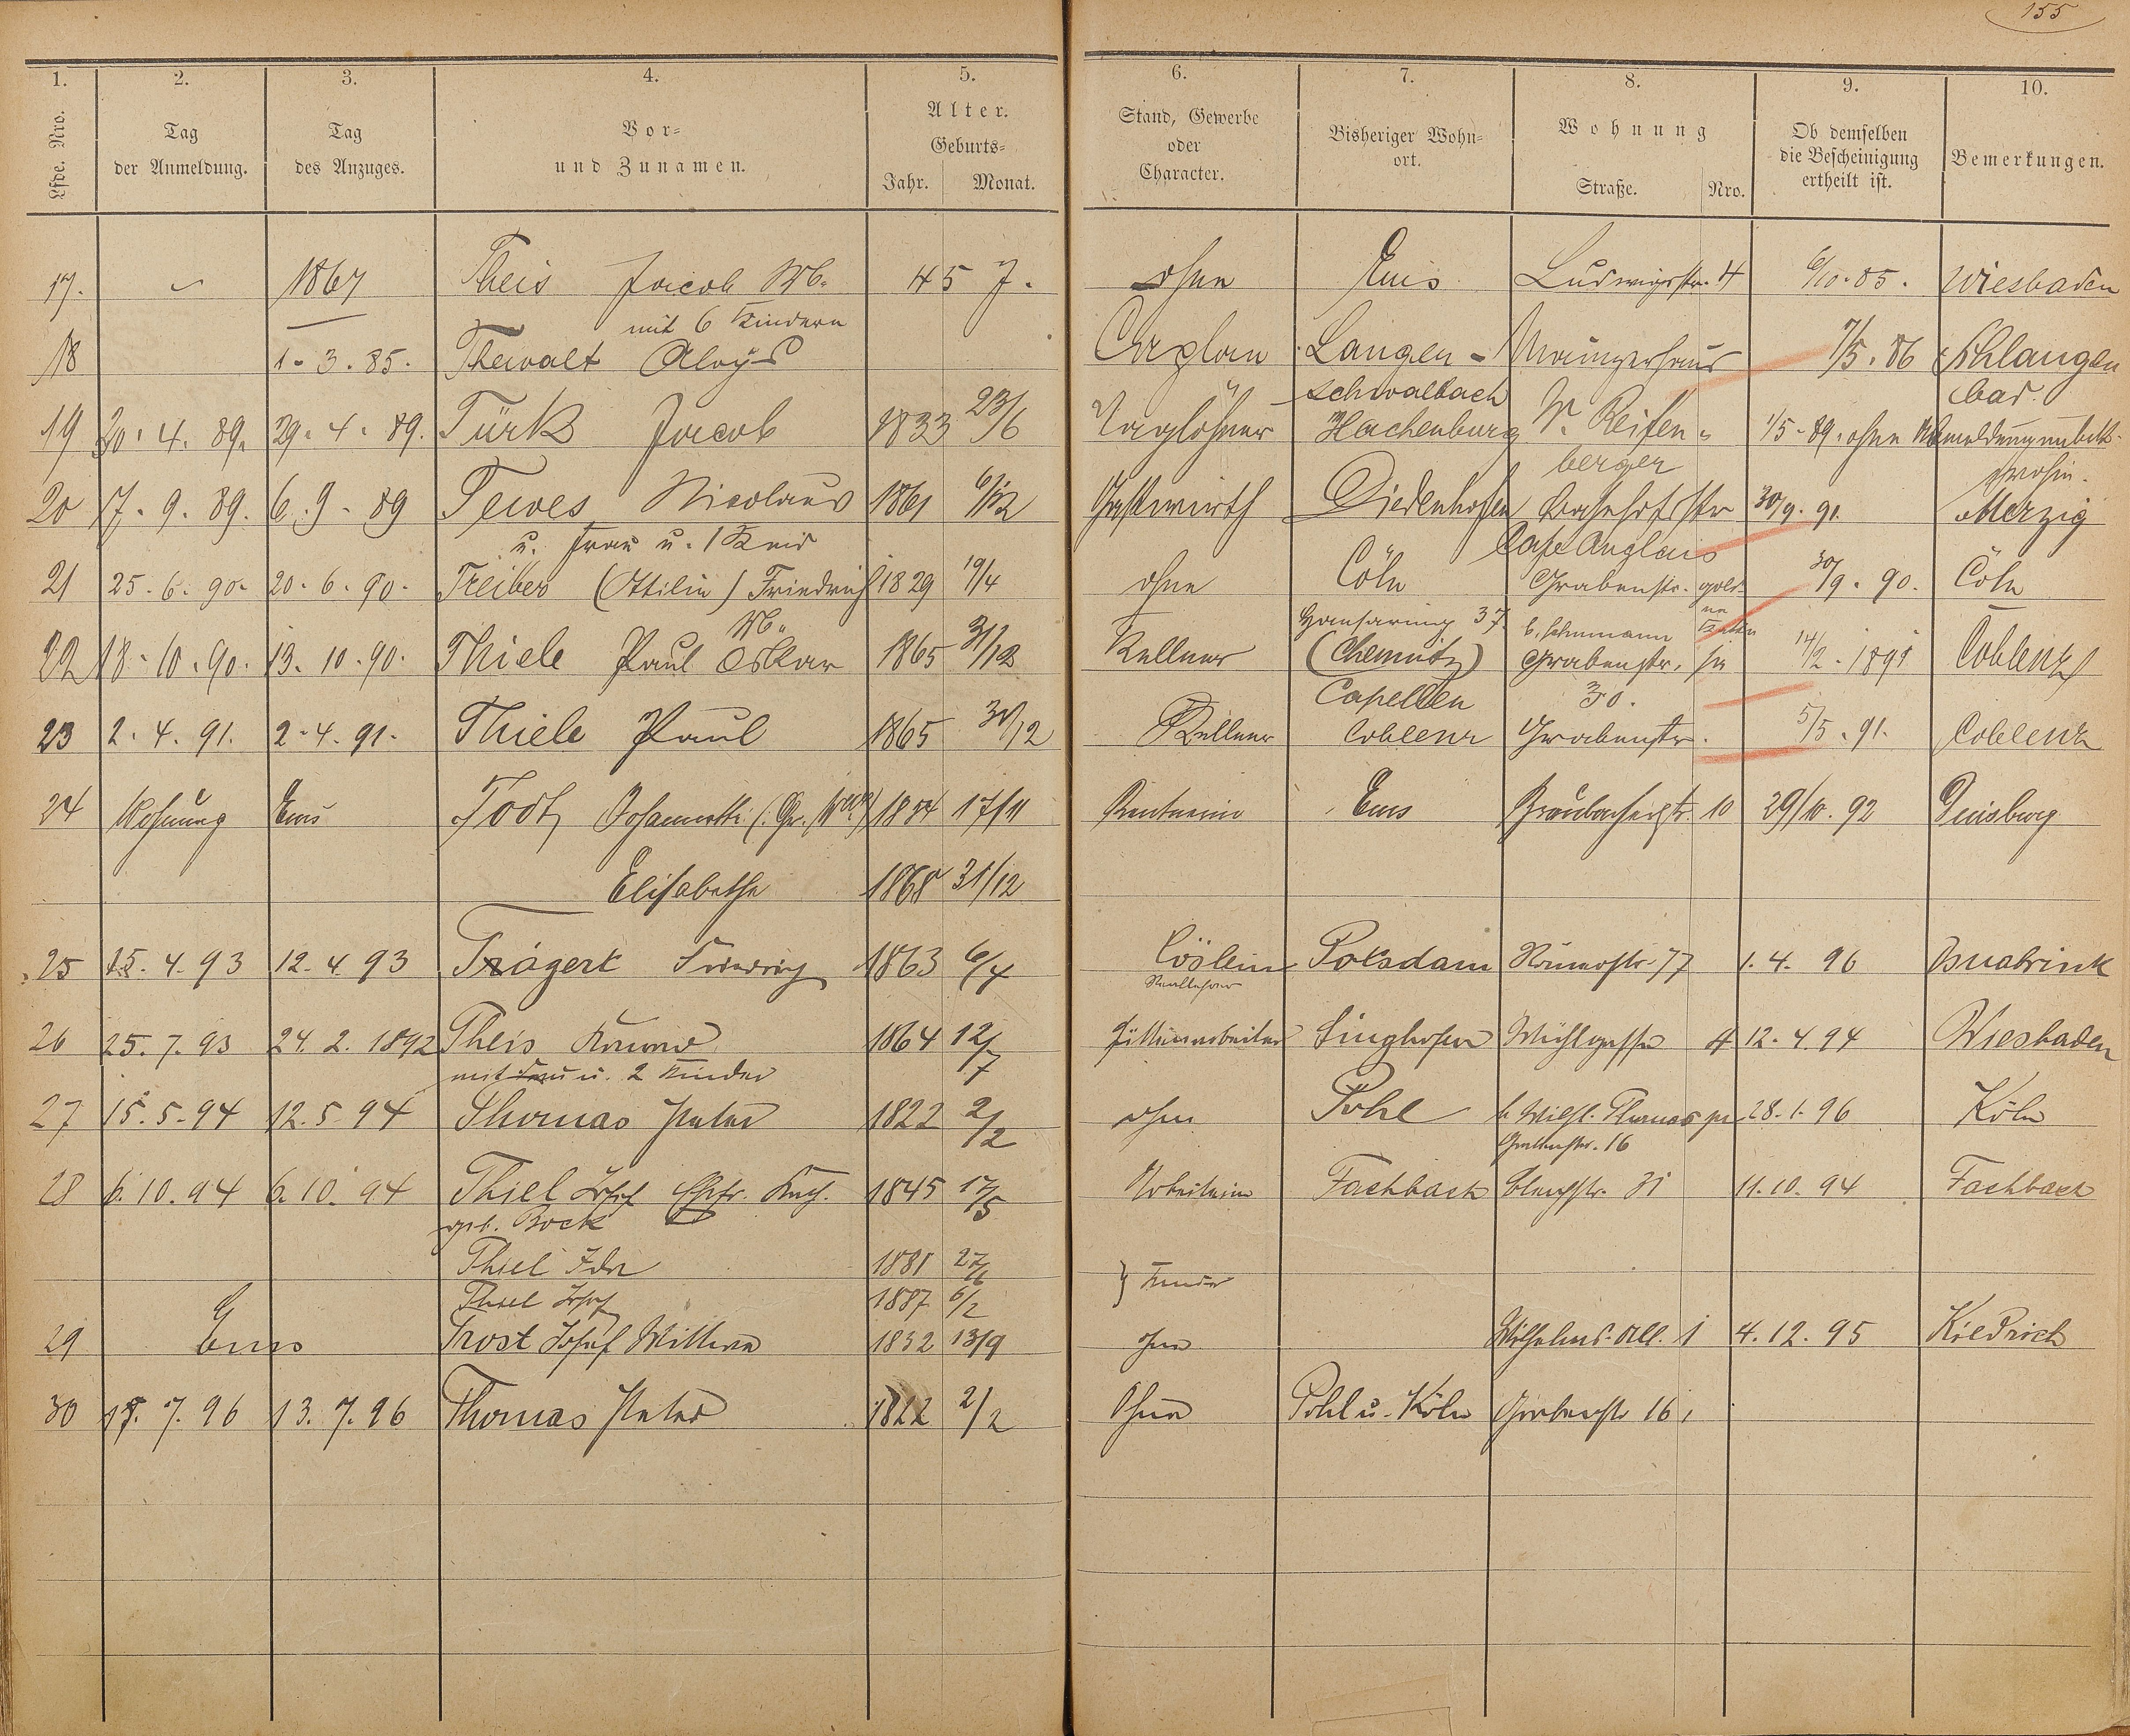 155
1. 2. 3. 4. 5. 6. 7. 8. 9. 10.
Lfde. Nro. Tag der Anmeldung. Tag des Anzuges. Vor- und Zunamen. Alter. Geburts- Jahr. Monat. Stand, Gewerbe oder Character. Bisheriger Wohn-ort. Wohnung Straße. Nro. Ob demselben die Bescheinigung ertheilt ist. Bemerkungen.
17. 1867 Theis Jacob Ww. 45 J. ohne Ems Ludwigstr. 4 6/10. 85. Wiesbaden
mit 6 Kindern
18 1. 3. 85. Thewalt Aloys Caplan Langen- Mainzerhaus 7/5. 86 Schlangen
schwalbach bad.
19 30. 4. 89. 29. 4. 89. Türk Jacob 1833 23/6 Taglöhner Hachenburg W. Reifen- 1/5. 89. ohne Abmeldung unbek.
berger wohin.
20 17. 9. 89. 6. 9. 89 Tewes Nicolaus 1861 6/12 Gastwirth Diedenhofen Bahnhofstr 30/9. 91. Merzig
u. Frau u. 1 Kind Cafe Anglais
21 25. 6. 90. 20. 6. 90. Treiber (Ottilie) Friedrich 1829 19/4 ohne Cöln Grabenstr. gold- 30/9. 90. Cöln
Ww. Hansaring 37. ne
22 18. 10. 90. 13. 10. 90. Thiele Paul Oskar 1865 31/12 Kellner (Chemnitz) b. Schumann Grabenstr. 14/2. 1891 Coblenz
Capellen 30.
23 2. 4. 91. 2. 4. 91. Thiele Paul 1865 31/12 Kellner Coblenz Grabenstr. 5/5. 91. Coblenz
24 Wohnung Ems Todt 17/11 Rentnerin Ems Braubacherstr. 10 29/10. 92 Duisburg
Elisabethe 1868 31/12
25 15. 4. 93 12. 4. 93 Trägert Friedrich 1863 6/4 Cöslin Potsdam Römerstr. 77 1. 4. 96 Osnabrück
Reallehrer
26 25. 7. 93 24. 2. 1892 Theis Konrad 1864 12/7 Hüttenarbeiter Singhofen Mühlgasse 4 12. 4. 94 Wiesbaden
mit Frau u. 2 Kinder
27 15. 5. 94 12. 5. 94 Thomas Peter 1822 2/2 ohne Pohl b. Wilh. Thomas 28. 1. 96 Köln
Grabenstr. 16
28 6. 10. 94 6. 10. 94 Thiel Josef Ehefr. Kath. 1845 17/5 Arbeiterin Fachbach 31 11. 10. 94 Fachbach
geb. Bock
Thiel Ida 1881 27/6
} Kinder
Thiel Josef 1887 6/2
29 Ems Trost Josef Wittwe 1832 13/9 ohne Wilhelms-All. 1 4. 12. 95 Kiedrich
30 15. 7. 96 13. 7. 96 Thomas Peter 1822 2/2 Ohne Pohl u. Köln Grabenstr 16